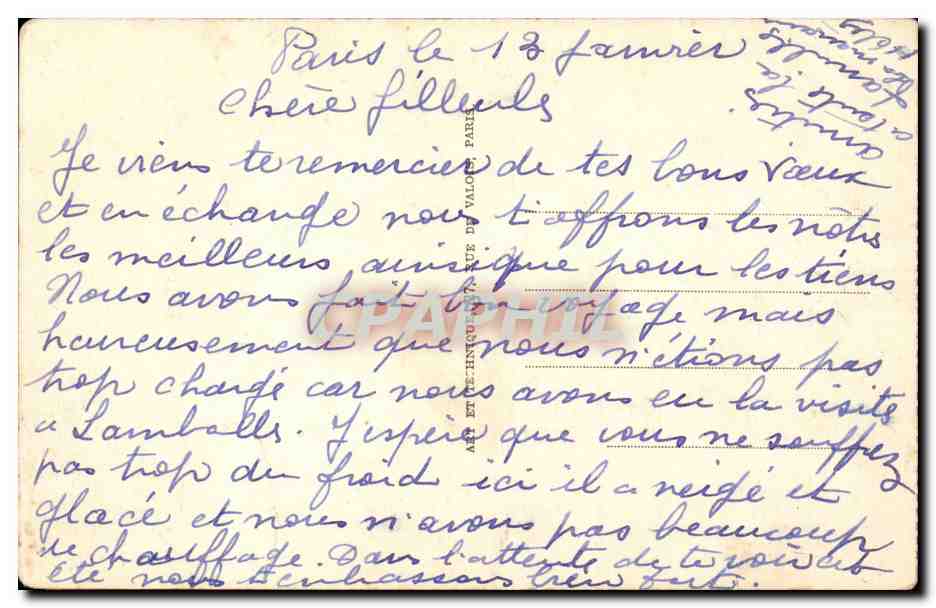 Paris le 13 Janvier
Chère filleule
Je viens te remercier de tes bons vœux
et en échange nous t'offrons les nôtres
les meilleurs ainsi que pour les tiens
Nous avons fait bon voyage mais
heureusement que nous n'étions pas
trop chargé car nous avons eu la visite
a Lamballe. J'espère que vous ne souffrez
pas trop du froid ici il a neigé et
glacé et nous n'avons pas beaucoup
de chauffage. Dans l'attente de te voir cet
été nous t'embrassons bien fort.
amitiés
a toute la
famille
ART ET TECHNIQUE, 67, RUE DE VALOIS, PARIS
CPAPHIL